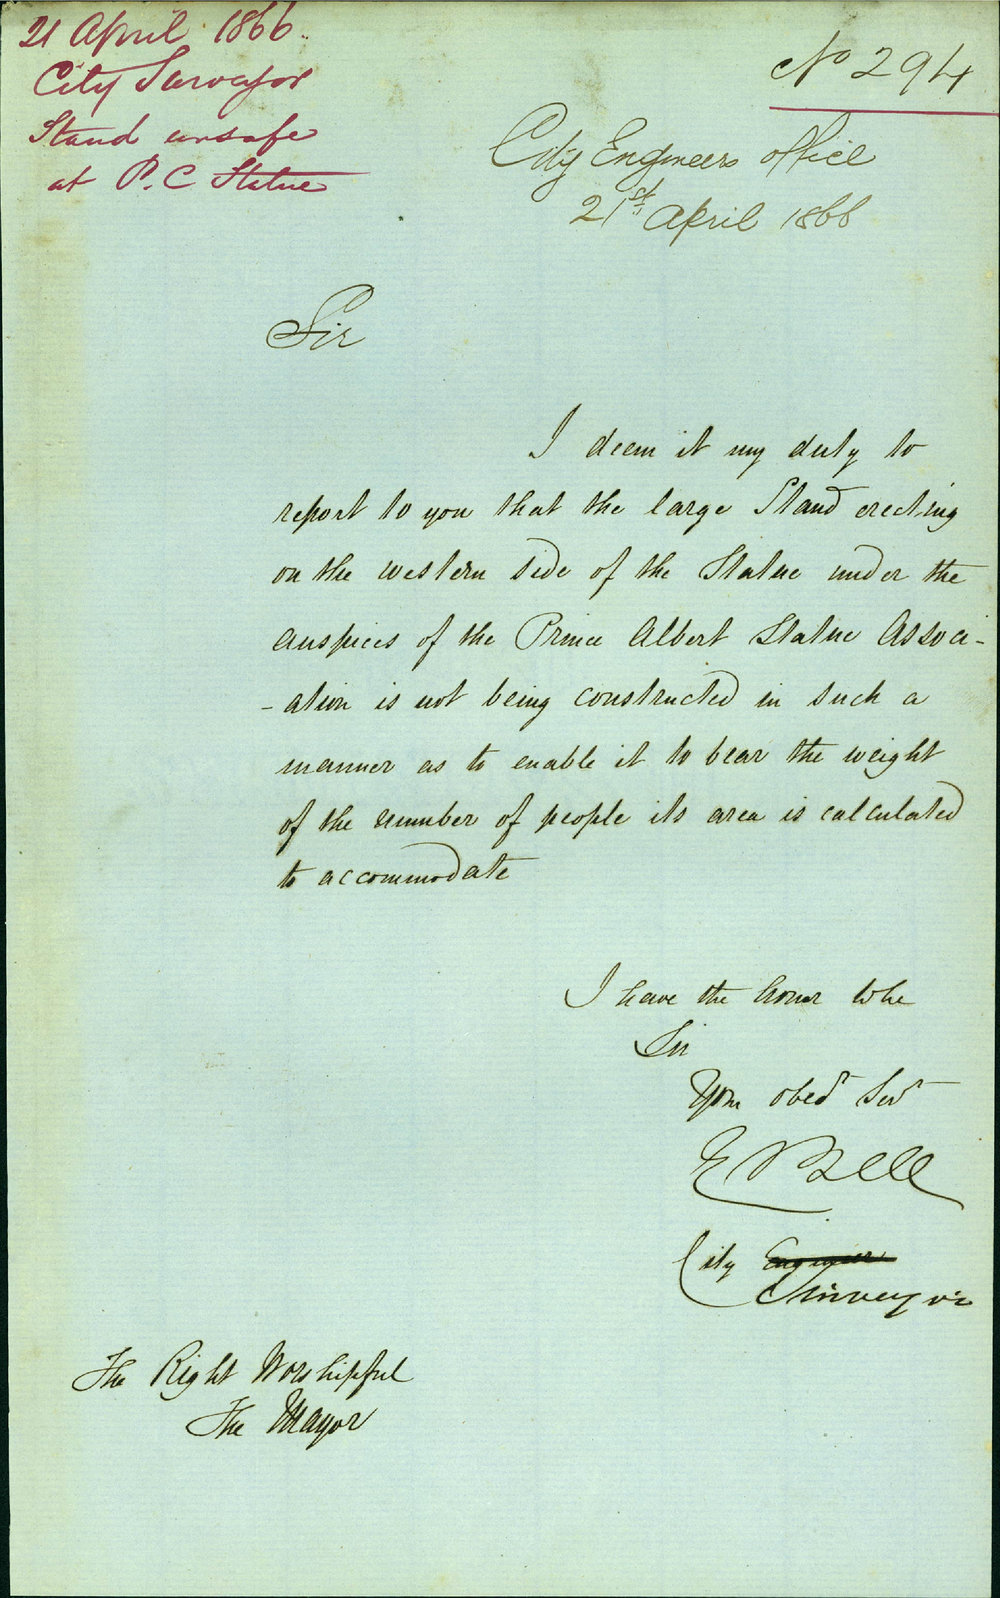 21 April 1866.
City Surveyor
Stand unsafe
at P. C Statue
No 294
City Engineers office
21st April 1866
Sir
I deem it my duty to
report to you that the large Stand erecting
on the western side of the Statue under the
auspices of the Prince Albert Statue Associ-
-ation is not being constructed in such a
manner as to enable it to bear the weight
of the number of people its area is calculated
to accommodate
I have the honor to be
Sir
Your obedt Servt
E Bell
City Engineer
Surveyor
The Right Worshipful
The Mayor